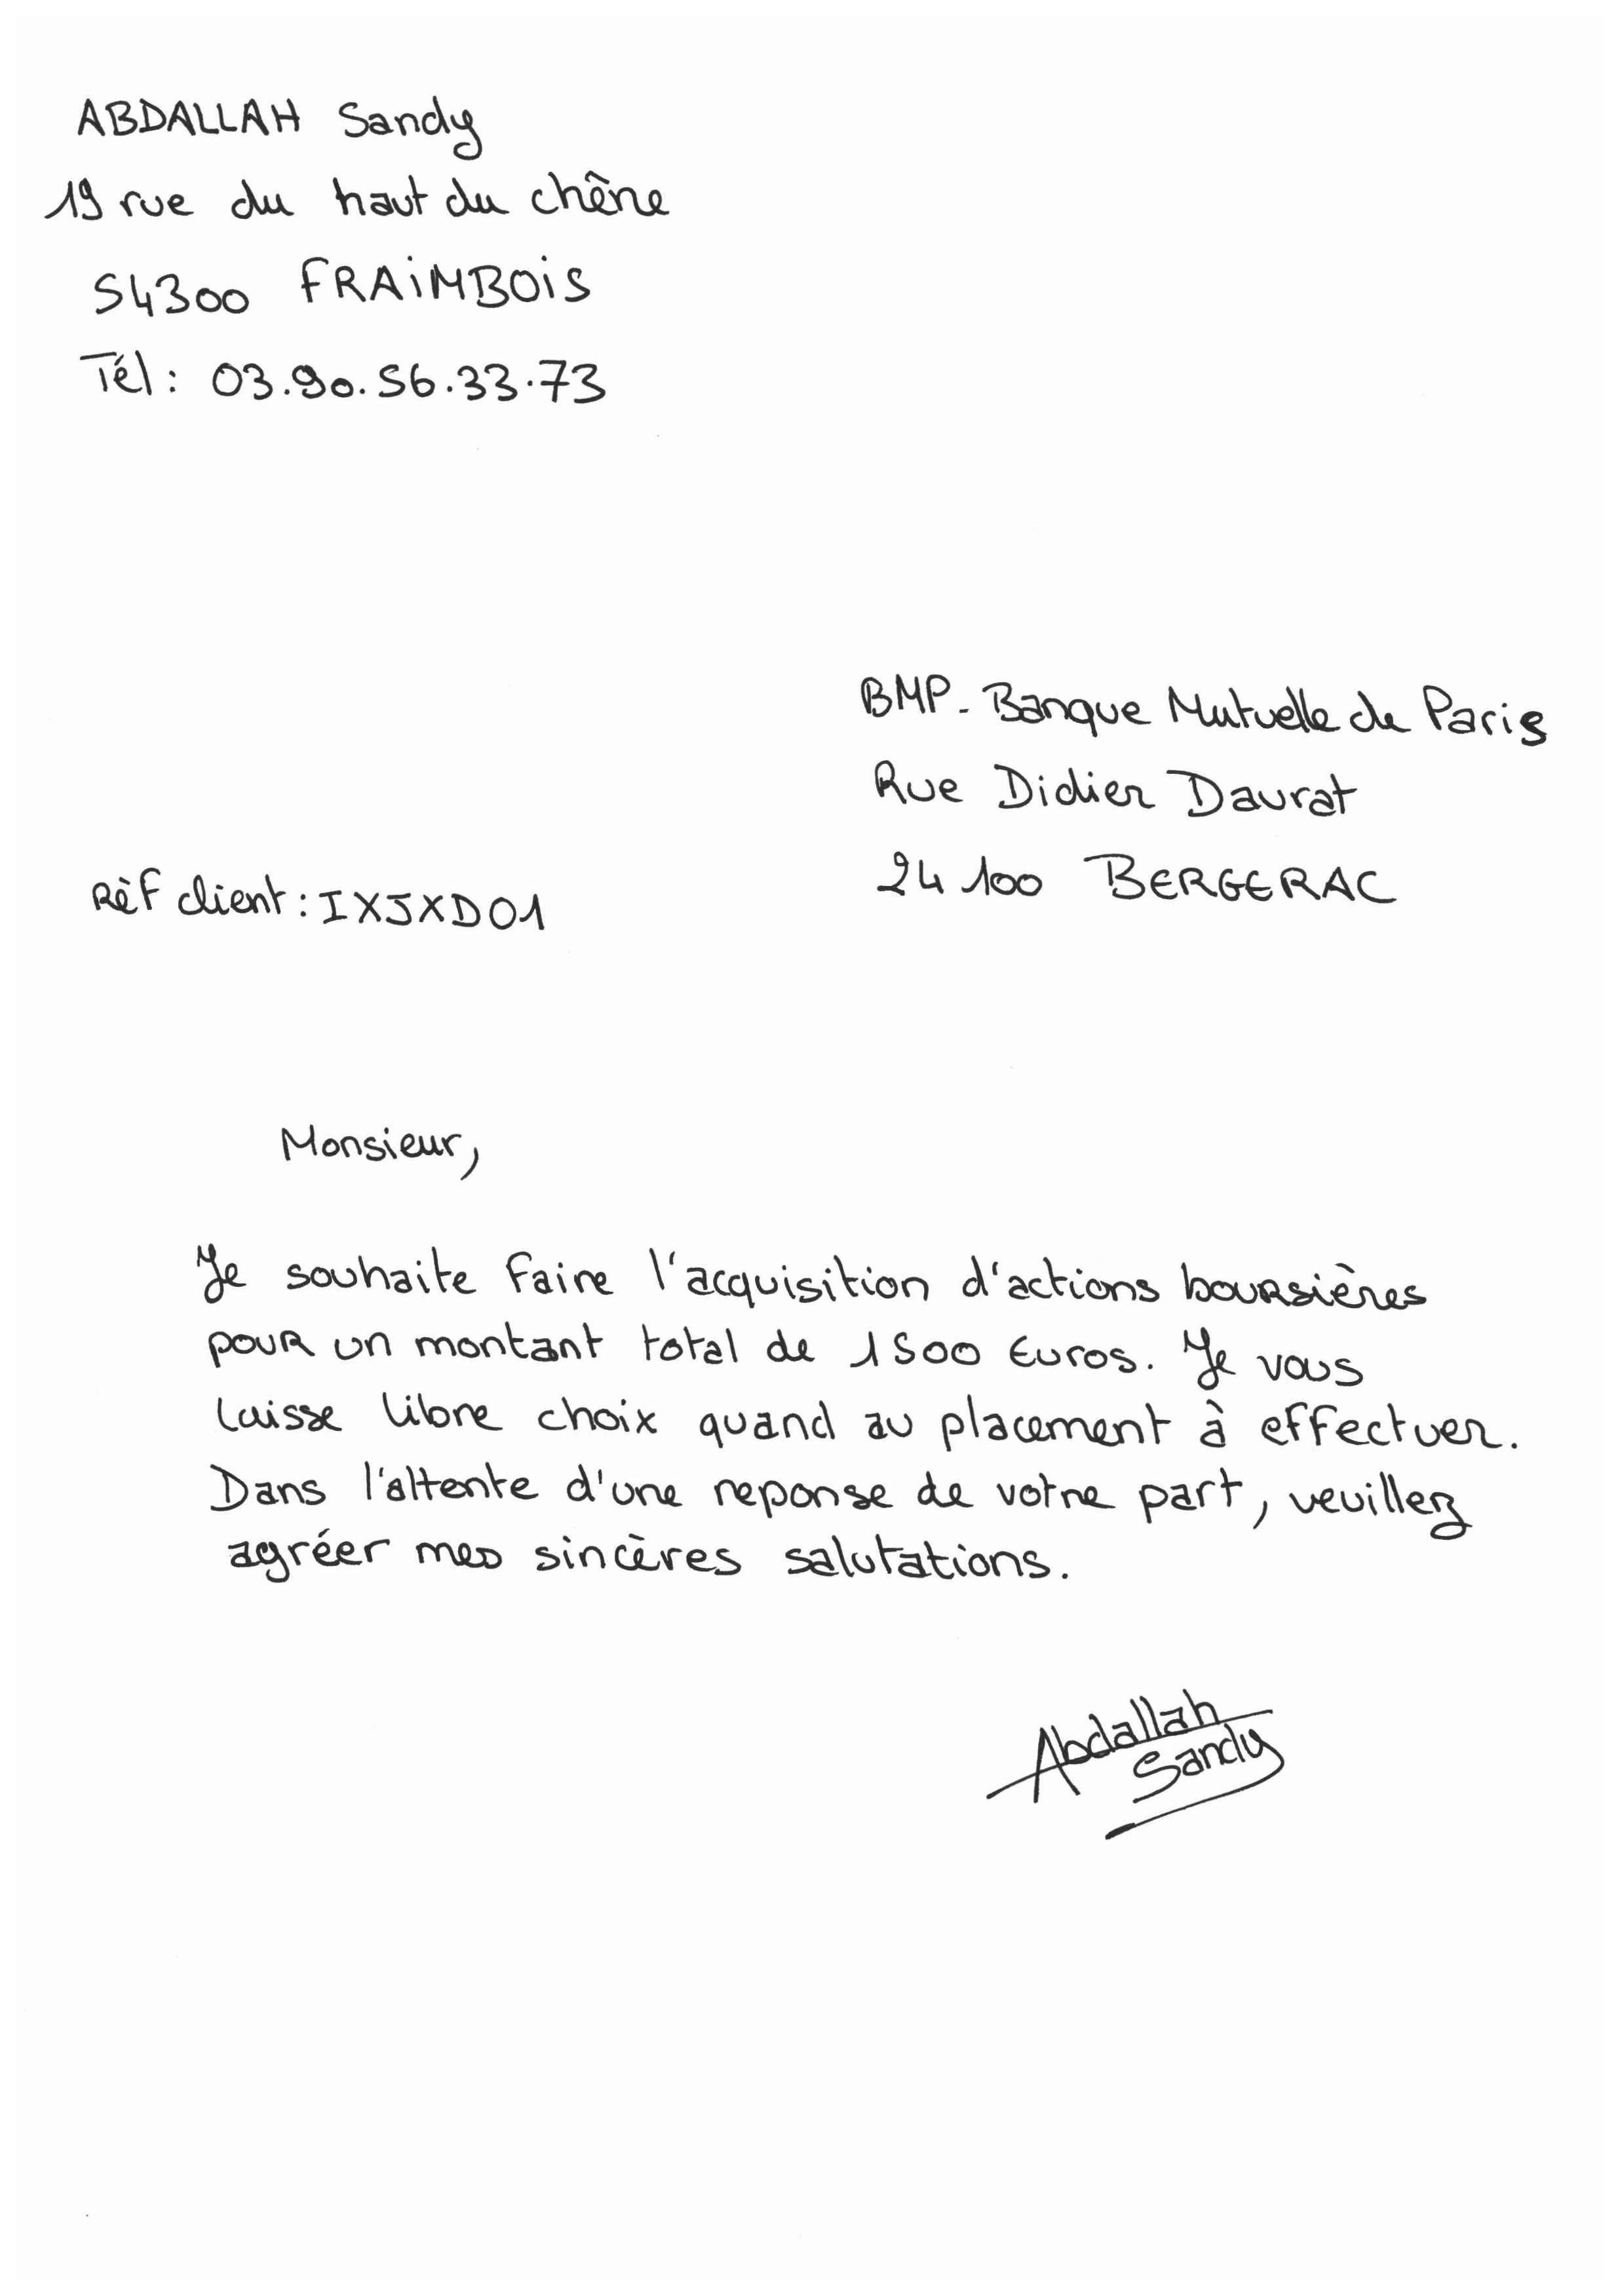 ABDALLAH Sandy
19 rue du haut du chêne
54300 FRAIMBOIS
Tél : 03.90.56.33.73
BMP - Banque Mutuelle de Paris
Rue Didier Daurat
24 100 BERGERAC
Rèf client : IXJXD01
Monsieur,
Je souhaite faire l'acquisition d'actions boursières
pour un montant total de 1500 Euros. Je vous
laisse libre choix quand au placement à effectuer.
Dans l'attente d'une reponse de votre part, veuillez
agréer mes sincères salutations.
Abdallah
Sandy